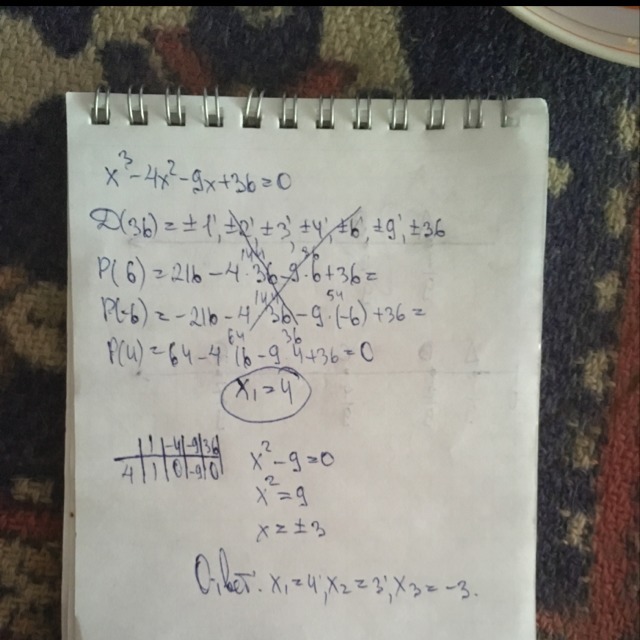 x³-4x²-9x+36=0
D(36)=±1; ±2; ±3; ±4; ±6; ±9; ±36
P(6)=216-4·36-9·6+36=
144 54
P(-6)=-216-4·36-9·(-6)+36=
144 54
P(4)=64-4·16-9·4+36=0
64 36
x₁=4
| 1 | -4 | -9 | 36
4 | 1 | 0 | -9 | 0
x²-9=0
x²=9
x=±3
Ответ: x₁=4; x₂=3; x₃=-3.